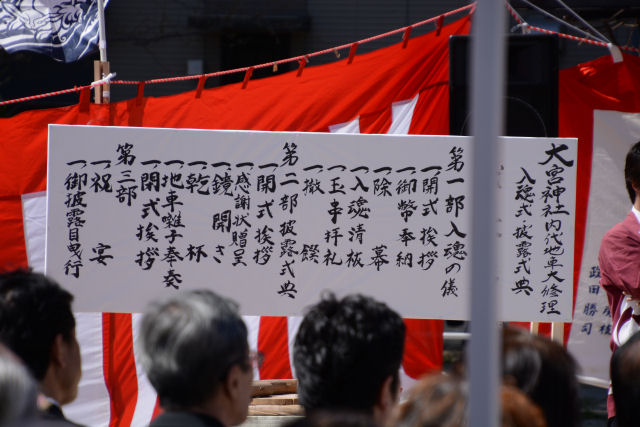 大宮神社内代地車大修理
入魂式・披露式典
第一部入魂の儀
一、開式挨拶
一、御幣奉納
一、除幕
一、入魂清祓
一、玉串拝礼
一、撤饌
第二部披露式典
一、開式挨拶
一、感謝状贈呈
一、鏡開き
一、乾杯
一、地車囃子奉奏
一、閉式挨拶
第三部
一、祝宴
一、御披露目曳行